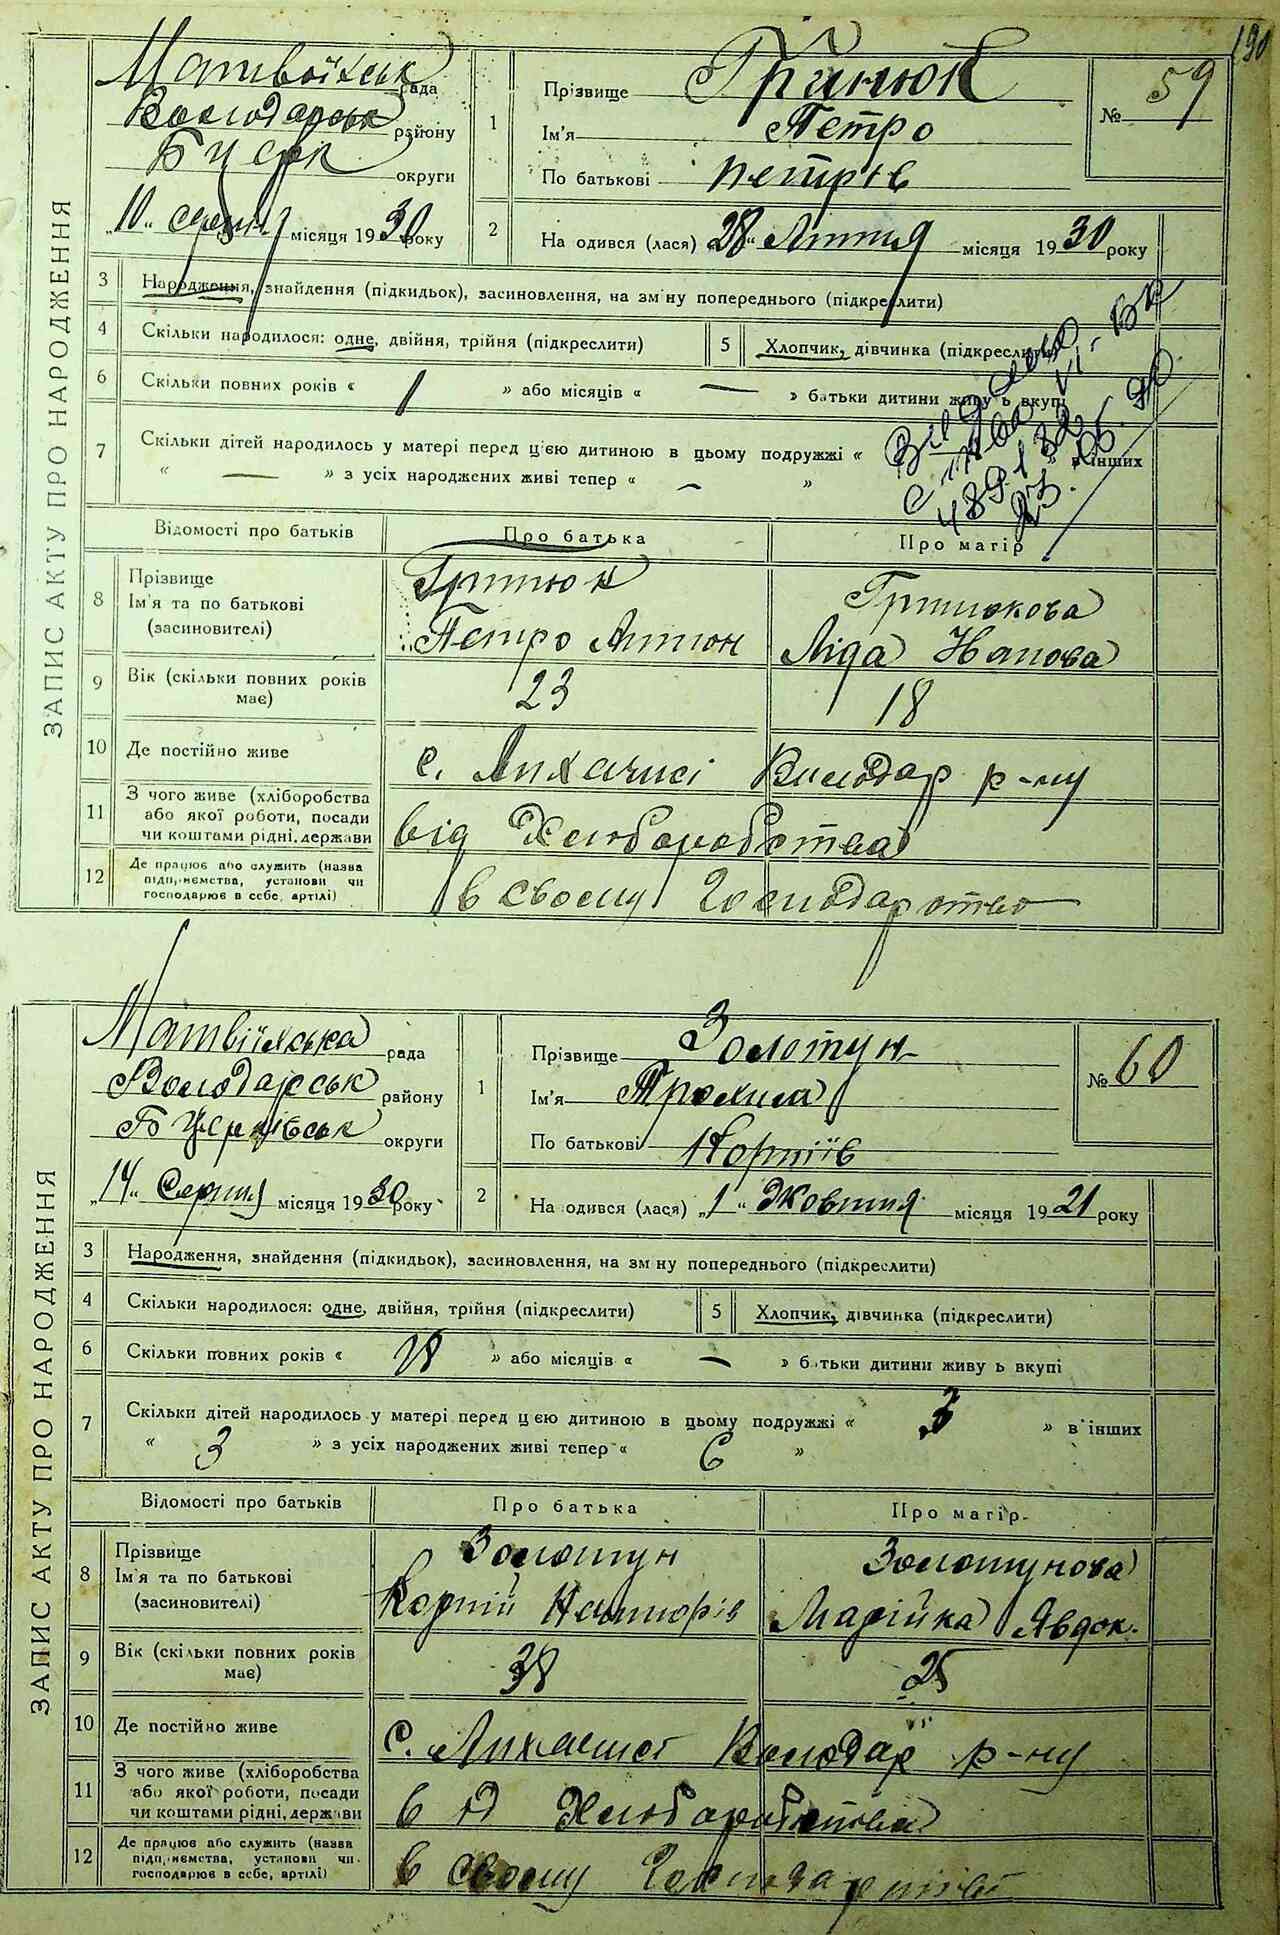 190
ЗАПИС АКТУ ПРО НАРОДЖЕННЯ
рада
Володарськ району
Б Церк округи
„10“ серпня місяця 1930 року
1
Прізвище Гринюк
Ім'я Петро
По батькові Петрів
№ 59
2
На одився (лася) „28“ Липня місяця 1930 року
3 Народження, знайдення (підкидьок), засиновлення, на зм ну попереднього (підкреслити)
4 Скільки народилося: одне, двійня, трійня (підкреслити)
5 Хлопчик, дівчинка (підкреслити)
6 Скільки повних років « 1 » або місяців « — » батьки дитини живу ь вкупі
7 Скільки дітей народилось у матері перед цією дитиною в цьому подружжі « » в інших
« — » з усіх народжених живі тепер « — »
Відомості про батьків Про батька Про матір
8 Прізвище
Ім'я та по батькові
(засиновителі)
Гринюк
Петро Антон
Гринюкова
Ліда Иванова
9 Вік (скільки повних років має) 23 18
10 Де постійно живе с. Лихачисі Володар р-ну
11 З чого живе (хліборобства
або якої роботи, посади
чи коштами рідні, держави
від Хлюборобства
12 Де працює або служить (назва
підприємства, установи чи
господарює в себе, артілі)
в своєму Господарство
ЗАПИС АКТУ ПРО НАРОДЖЕННЯ
Матвіїхська рада
Володарськ району
Б Церківськ округи
„14“ Серпня місяця 1930 року
1
Прізвище Золотун
Ім'я
По батькові Корніїв
№ 60
2
На одився (лася) „1“ Жовтня місяця 1921 року
3 Народження, знайдення (підкидьок), засиновлення, на зм ну попереднього (підкреслити)
4 Скільки народилося: одне, двійня, трійня (підкреслити)
5 Хлопчик, дівчинка (підкреслити)
6 Скільки повних років « » або місяців « — » батьки дитини живу ь вкупі
7 Скільки дітей народилось у матері перед цією дитиною в цьому подружжі « 3 » в інших
« 3 » з усіх народжених живі тепер « 6 »
Відомості про батьків Про батька Про матір
8 Прізвище
Ім'я та по батькові
(засиновителі)
Золотун
Корній
Золотунова
Марійка Явдок.
9 Вік (скільки повних років має) 38 25
10 Де постійно живе с. Володар р-ну
11 З чого живе (хліборобства
або якої роботи, посади
чи коштами рідні, держави
Хлюборобства
12 Де працює або служить (назва
підприємства, установи чи
господарює в себе, артілі)
в своєму